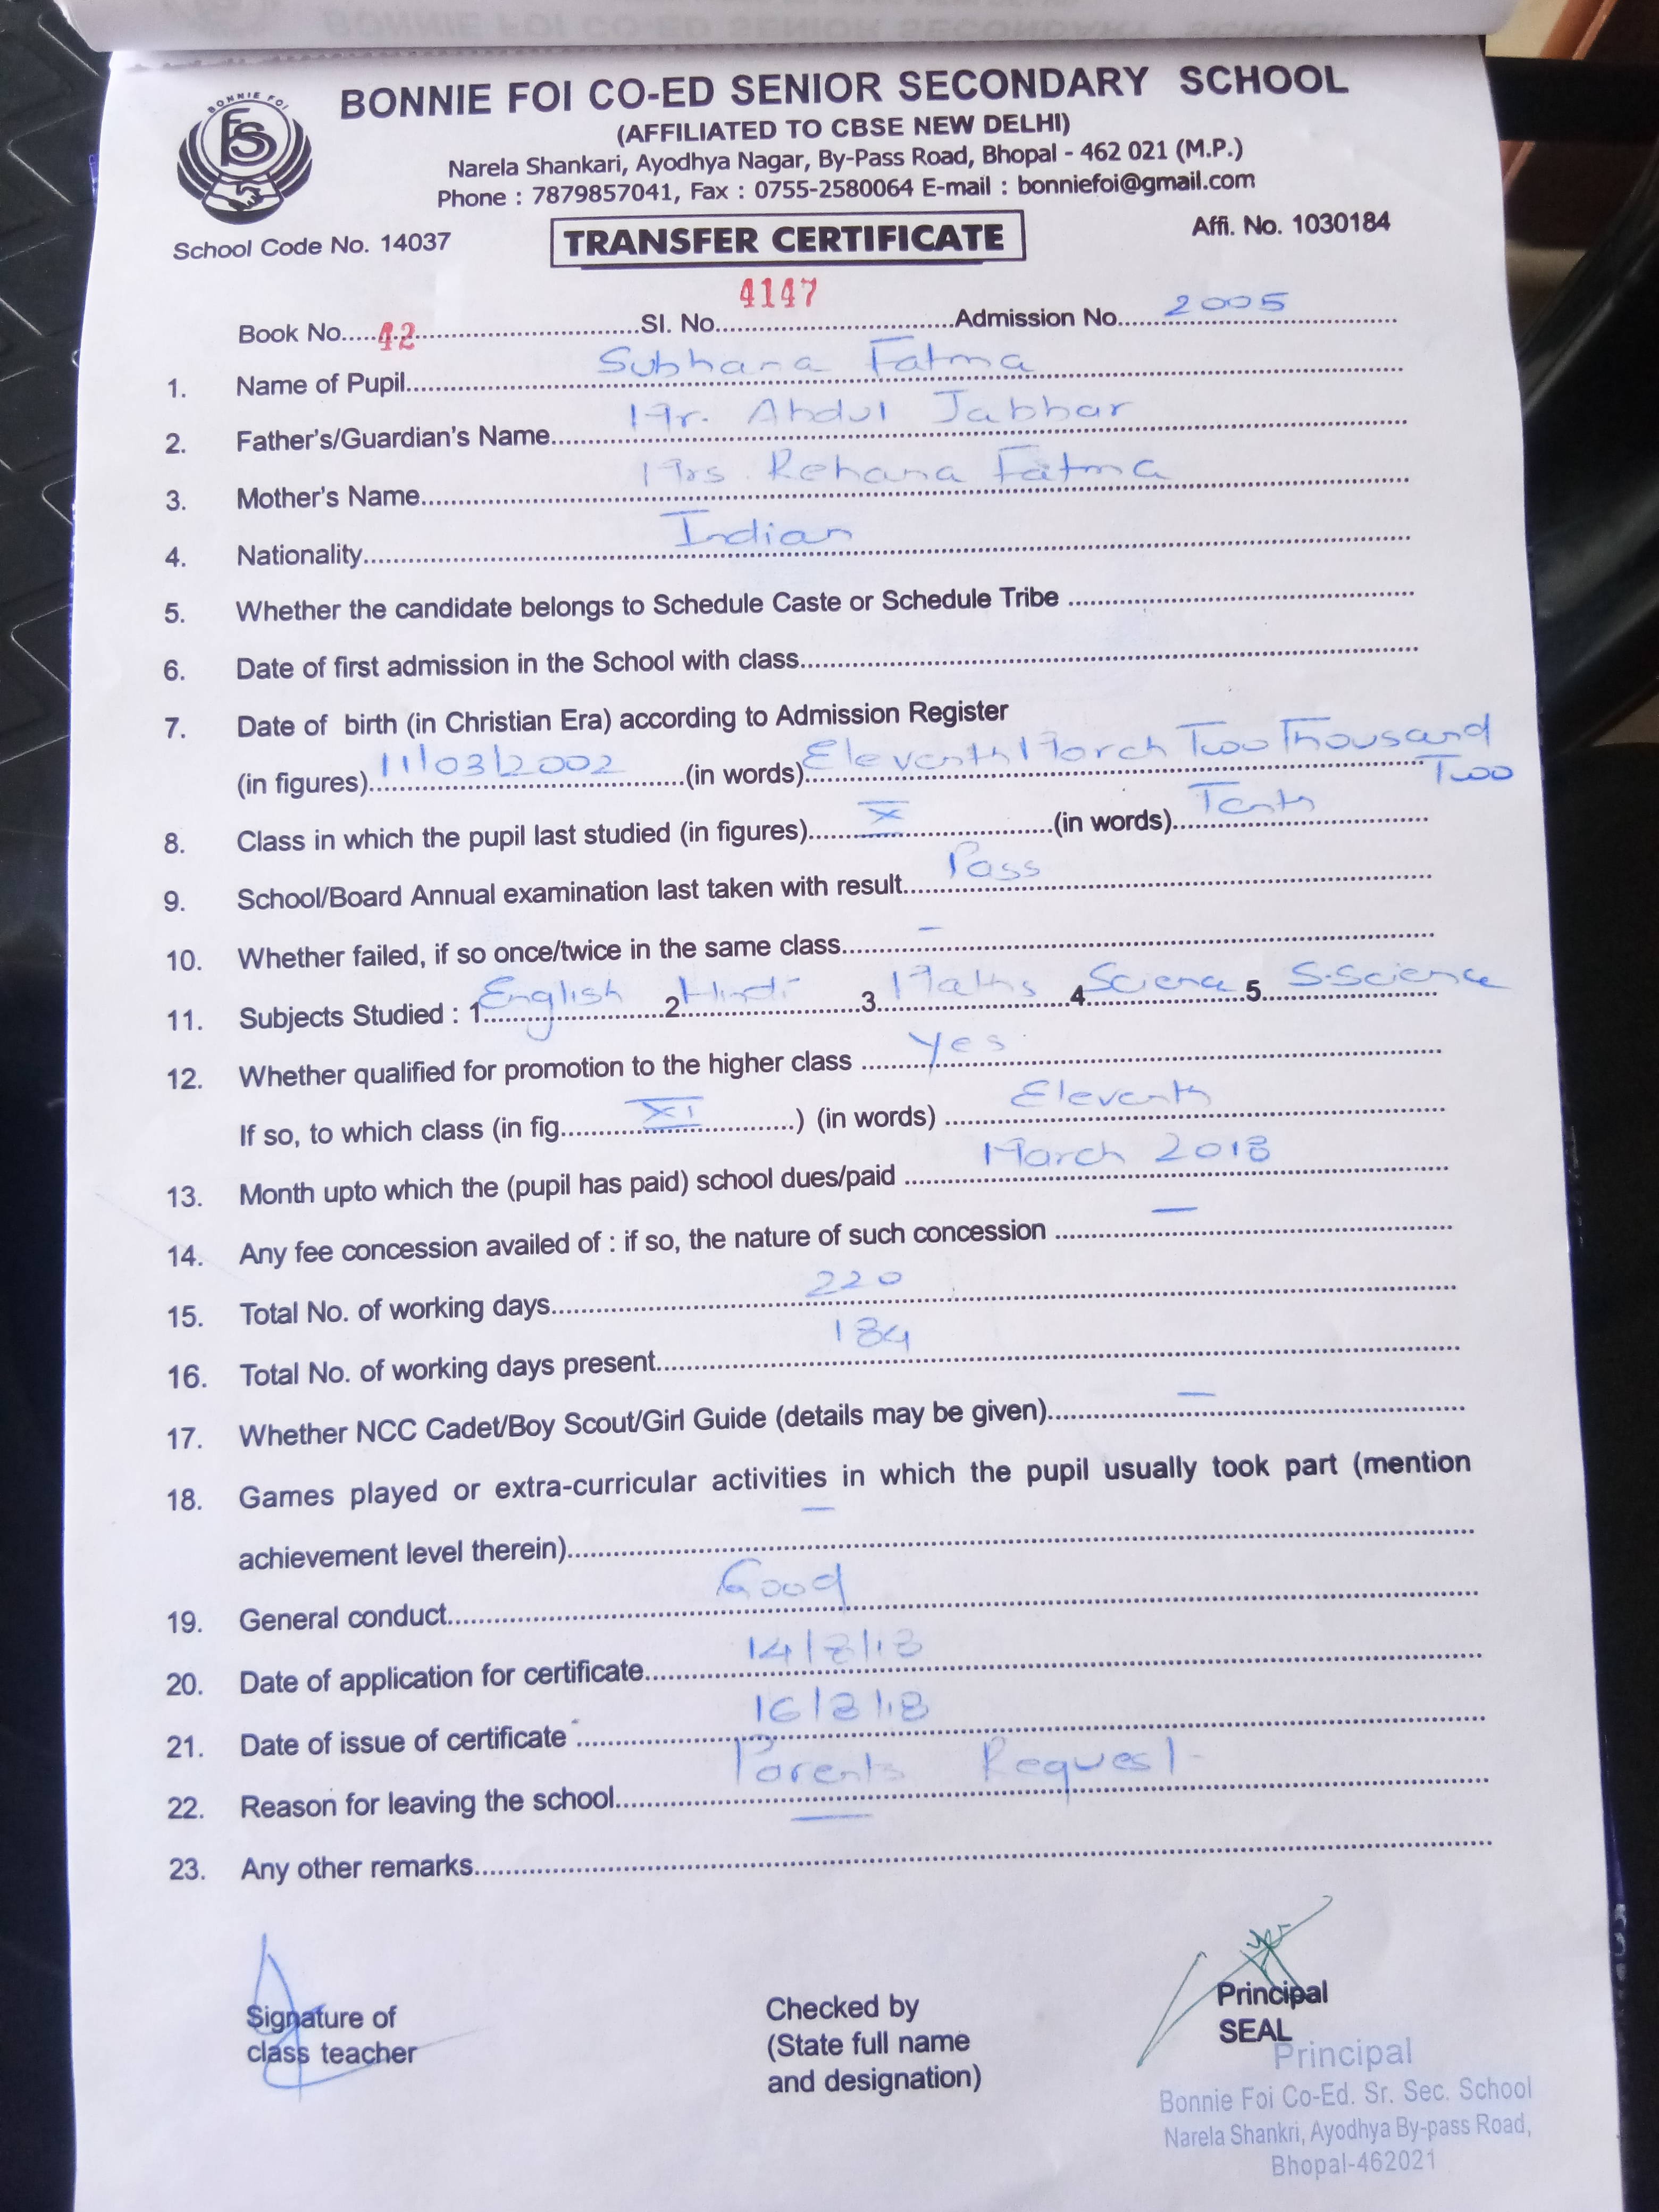 BONNIE FOI CO-ED SENIOR SECONDARY SCHOOL
BONNIE FOI
FS
(AFFILIATED TO CBSE NEW DELHI)
Narela Shankari, Ayodhya Nagar, By-Pass Road, Bhopal - 462 021 (M.P.)
Phone : 7879857041, Fax : 0755-2580064 E-mail : bonniefoi@gmail.com
School Code No. 14037 TRANSFER CERTIFICATE Affi. No. 1030184
Book No. 42 Sl. No. 4147 Admission No. 2005
1. Name of Pupil Subhana Fatma
2. Father's/Guardian's Name Mr. Abdul Jabbar
3. Mother's Name Mrs. Rehana Fatma
4. Nationality Indian
5. Whether the candidate belongs to Schedule Caste or Schedule Tribe
6. Date of first admission in the School with class
7. Date of birth (in Christian Era) according to Admission Register
(in figures) 11/03/2002 (in words) Eleventh March Two Thousand
Two
8. Class in which the pupil last studied (in figures) X (in words) Tenth
9. School/Board Annual examination last taken with result Pass
10. Whether failed, if so once/twice in the same class —
11. Subjects Studied : 1 English 2 Hindi 3. Maths 4 Science 5. S.Science
12. Whether qualified for promotion to the higher class Yes
If so, to which class (in fig. XI ) (in words) Eleventh
13. Month upto which the (pupil has paid) school dues/paid March 2018
14. Any fee concession availed of : if so, the nature of such concession —
15. Total No. of working days 220
16. Total No. of working days present 184
17. Whether NCC Cadet/Boy Scout/Girl Guide (details may be given) —
18. Games played or extra-curricular activities in which the pupil usually took part (mention
achievement level therein) —
19. General conduct Good
20. Date of application for certificate 14/8/18
21. Date of issue of certificate 16/8/18
22. Reason for leaving the school Parents Request
23. Any other remarks —
Signature of
class teacher
Checked by
(State full name
and designation)
Principal
SEAL
Principal
Bonnie Foi Co-Ed. Sr. Sec. School
Narela Shankri, Ayodhya By-pass Road,
Bhopal-462021